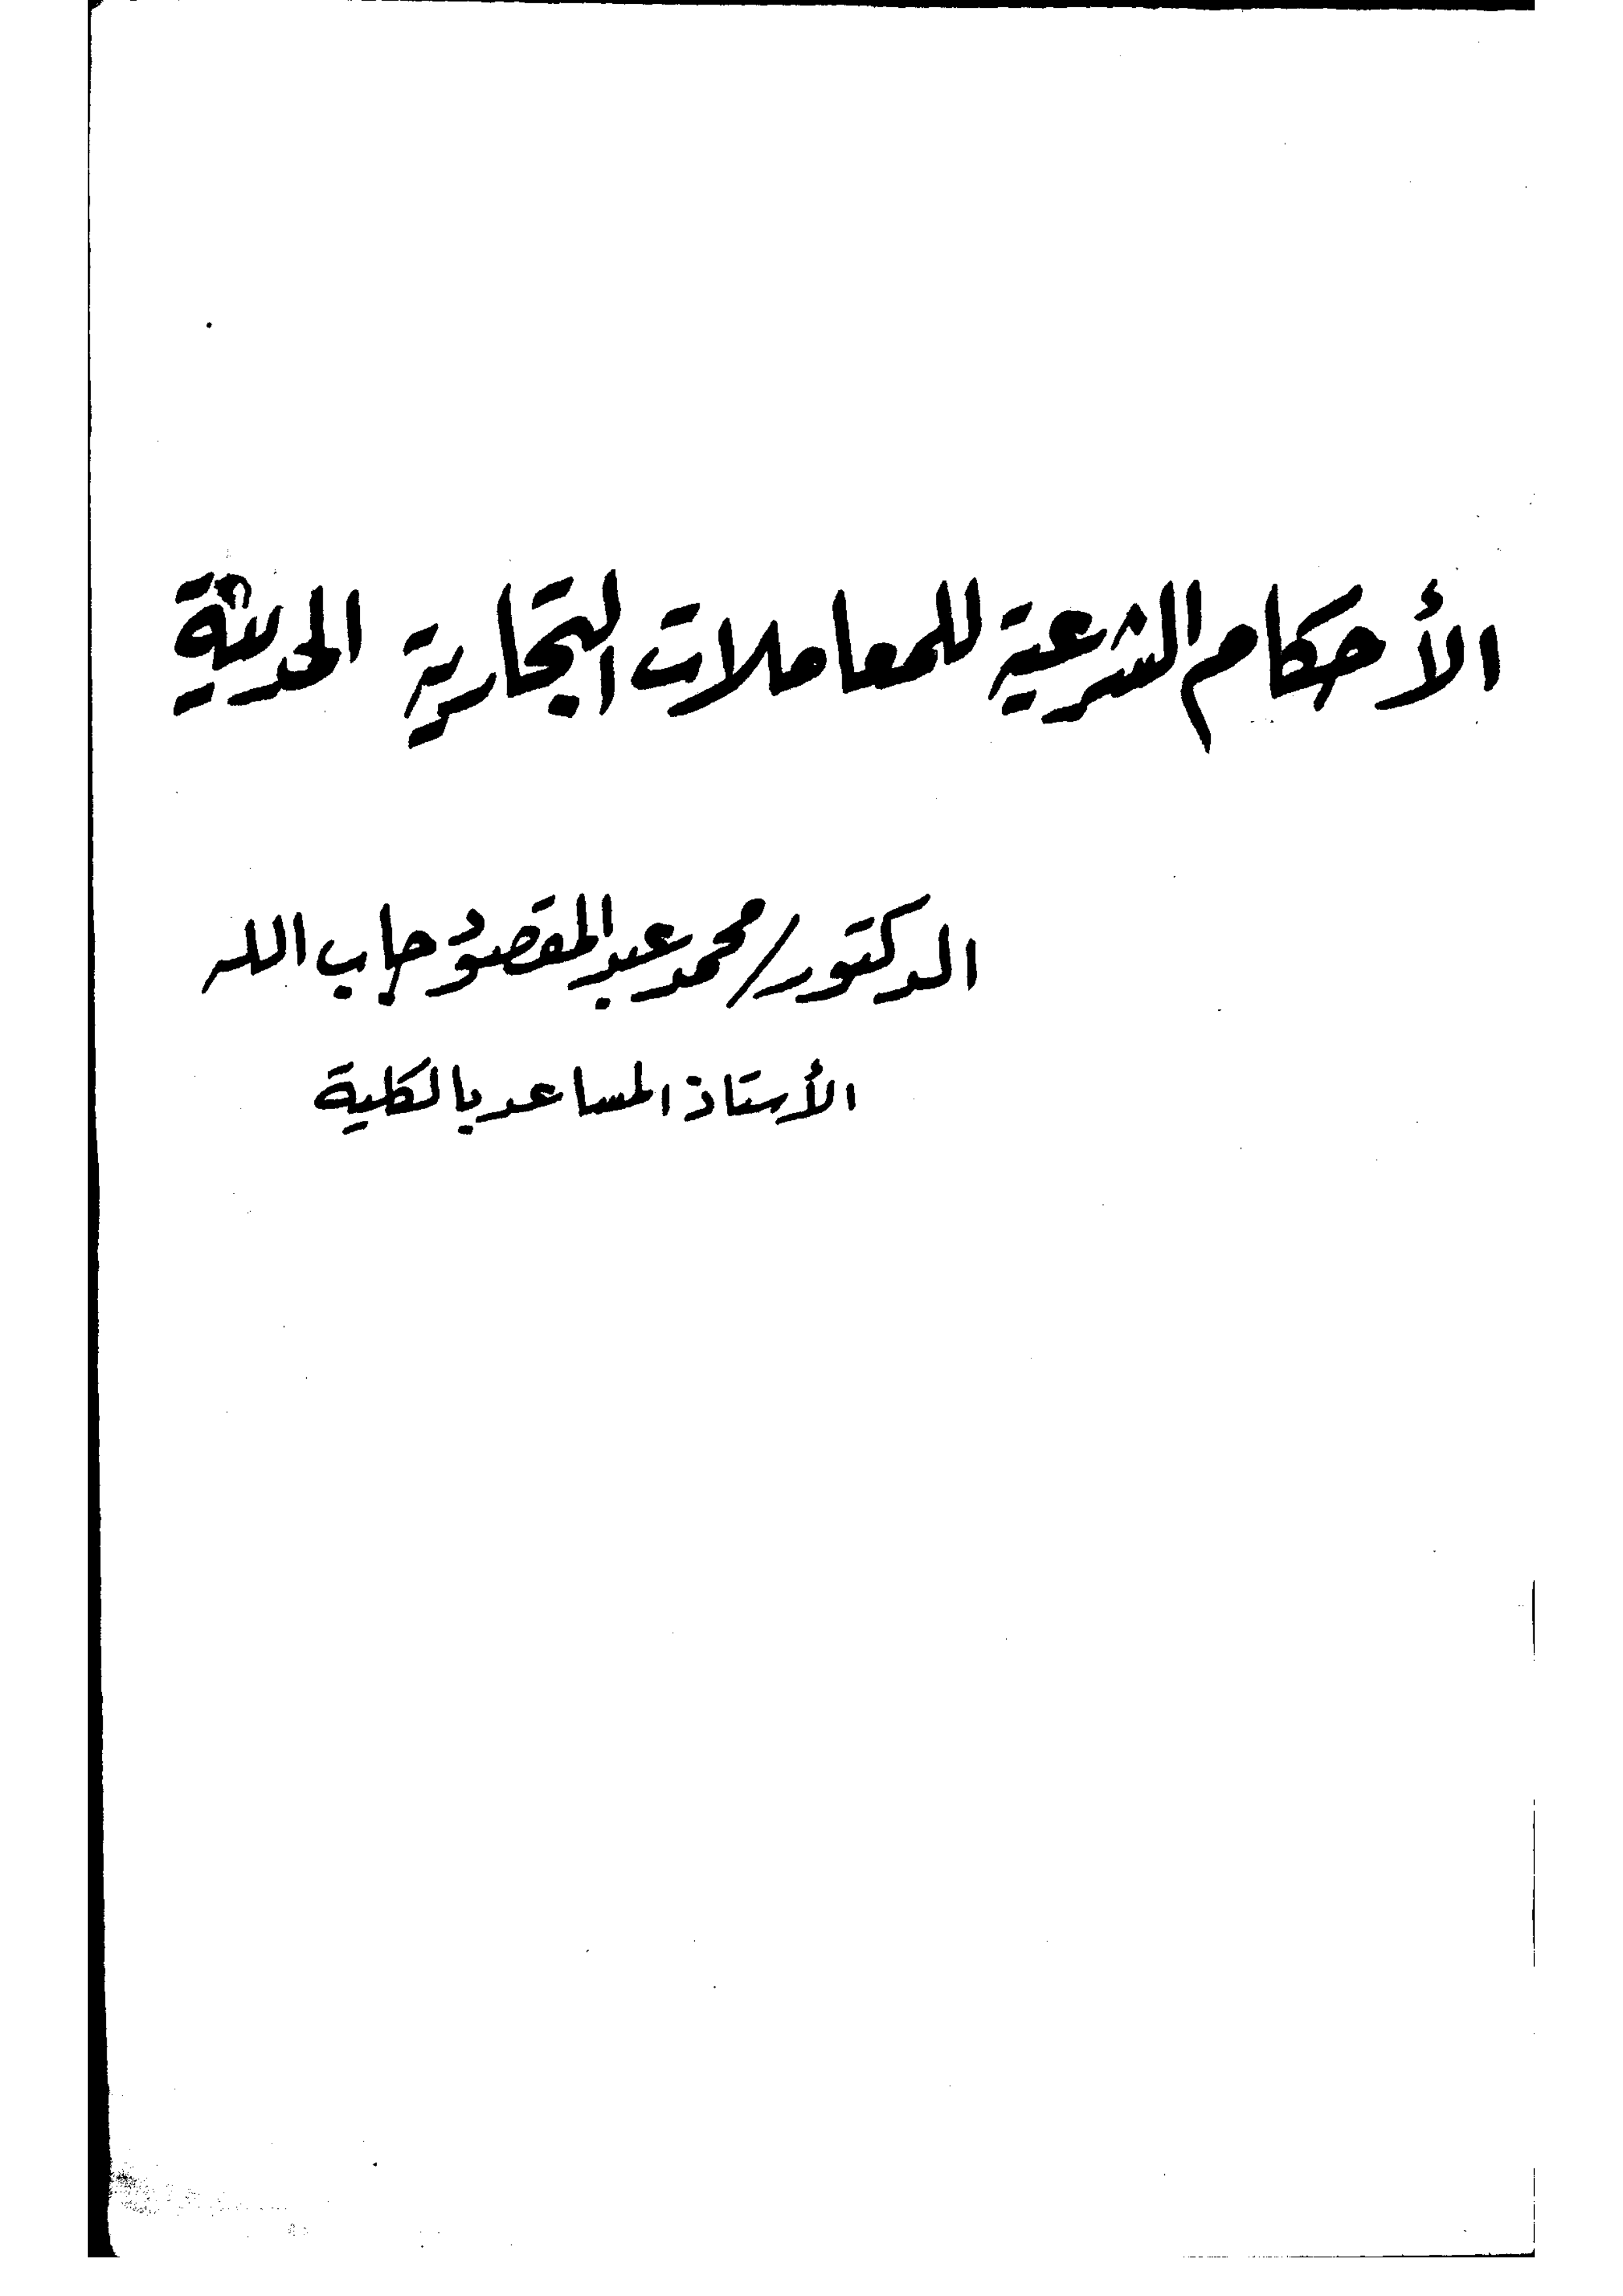 الأحكام الشرعية للمعاملات التجارية الحديثة
الدكتور/ محمد عبد المقصود جاب الله
الأستاذ المساعد بالكلية